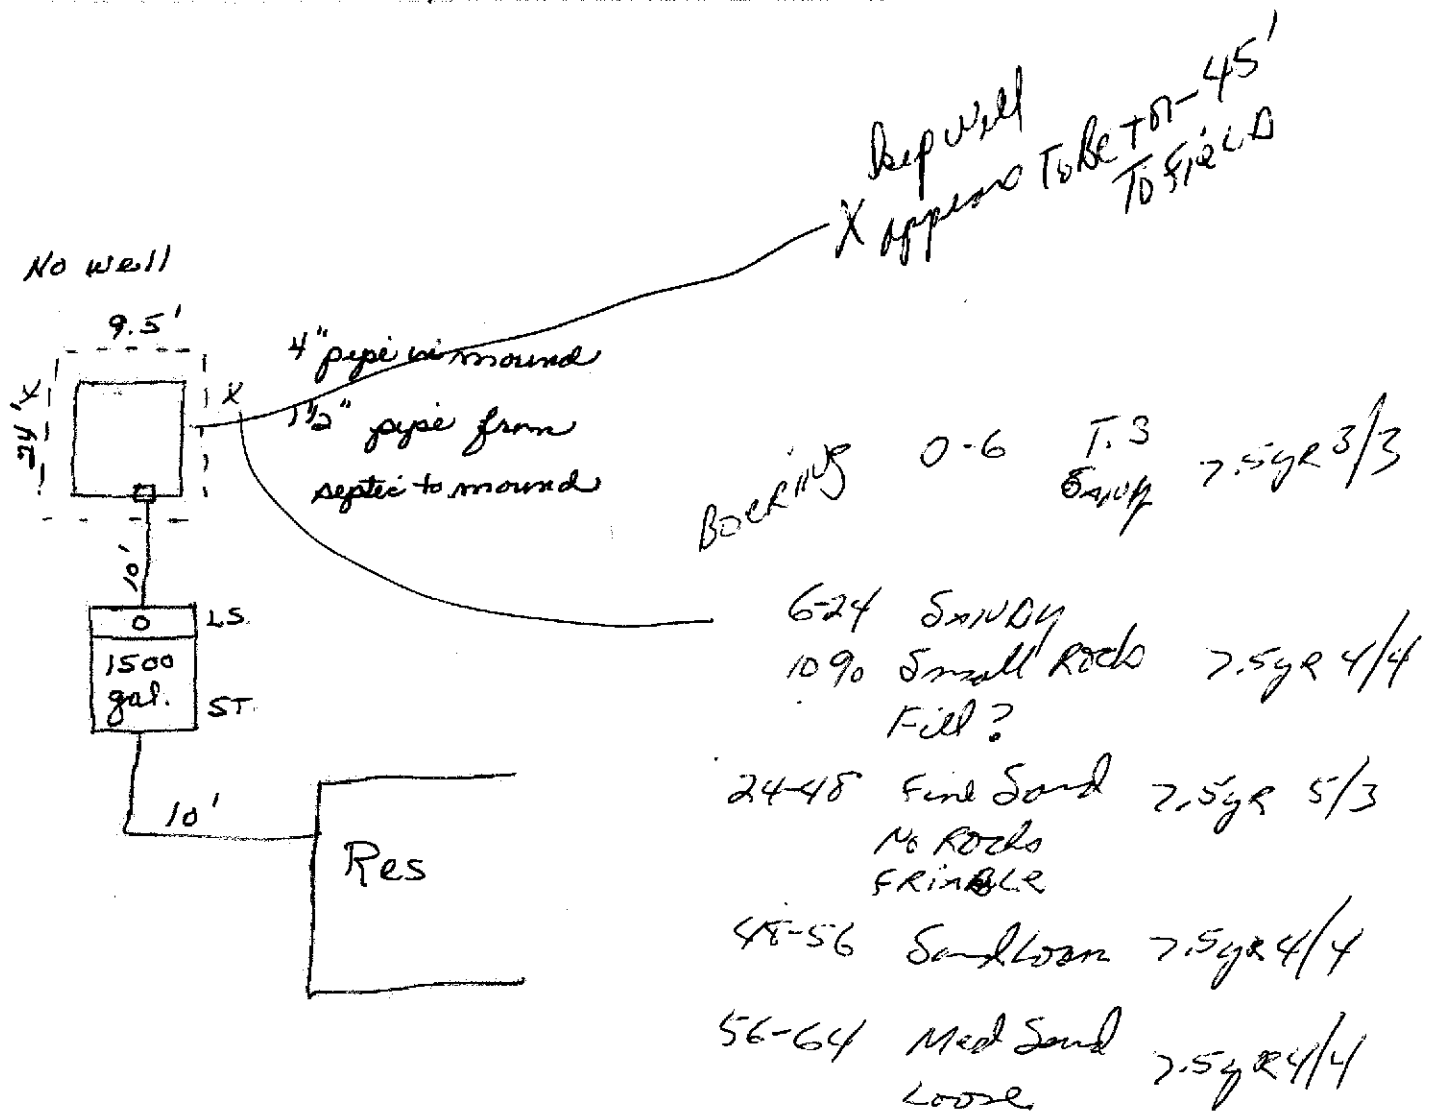 Deep well
X appears To Be + or - 45'
To FiELD
No well
9.5'
24'
X
X
4" pipe in mound
1 1/2" pipe from
septic to mound
10'
LS.
1500
gal.
ST.
10'
Res
BOERiNG 0-6 T.S 7.5yR 3/3
SANDY
6-24 SANDY
10% Small Rocks 7.5yR 4/4
Fill?
24-48 Fine Sand 7.5yR 5/3
No Rocks
FRiABLE
48-56 Sand Loam 7.5yR 4/4
56-64 Med Sand 7.5yR 4/4
Loose